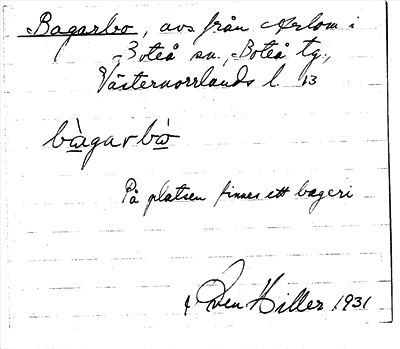 Bagarbo, avs från Arlom i
Boteå sn., Boteå tg.,
Västernorrlands l. 13
bàgarbò
På platsen finnes ett bageri
Sven Hiller 1931